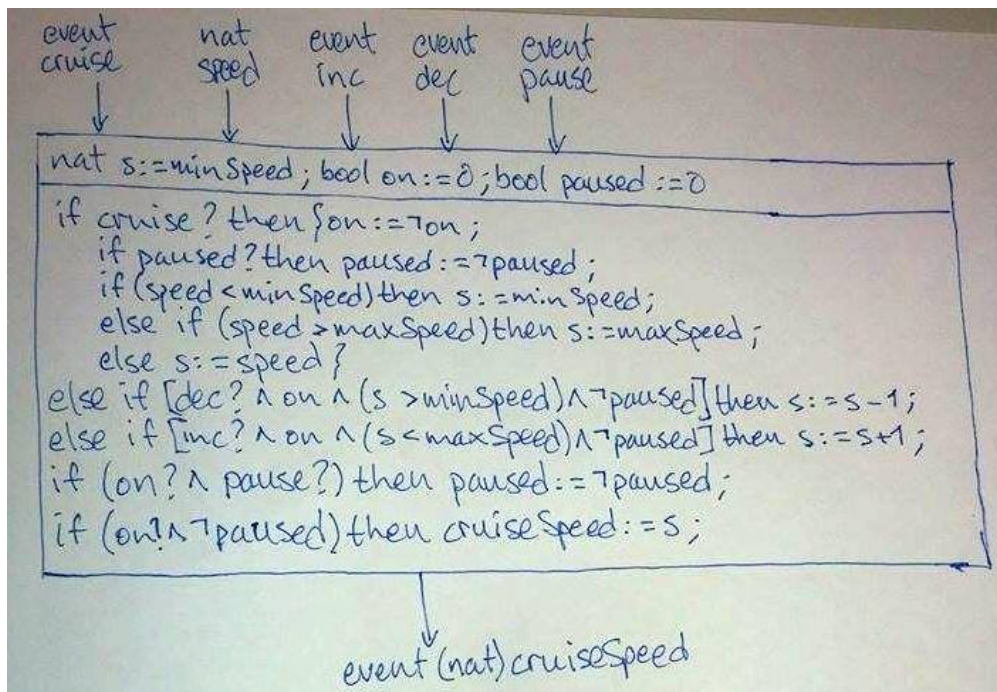 event cruise
nat speed
event inc
event dec
event pause
nat s:=minSpeed; bool on:=0; bool paused:=0
if cruise? then {on:=¬on;
if paused? then paused:=¬paused;
if (speed<minSpeed) then s:=minSpeed;
else if (speed>maxSpeed) then s:=maxSpeed;
else s:=speed}
else if [dec? ∧ on ∧ (s>minSpeed) ∧ ¬paused] then s:=s-1;
else if [inc? ∧ on ∧ (s<maxSpeed) ∧ ¬paused] then s:=s+1;
if (on? ∧ pause?) then paused:=¬paused;
if (on? ∧ ¬paused) then cruiseSpeed:=s;
event(nat) cruiseSpeed